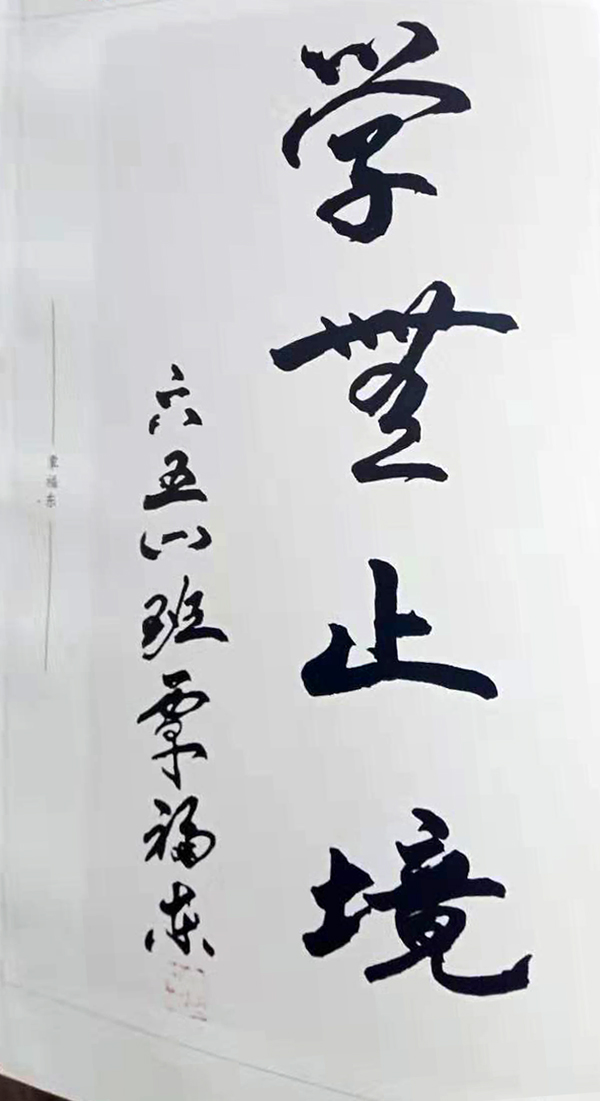 学無止境
六五八班覃福东
覃福东